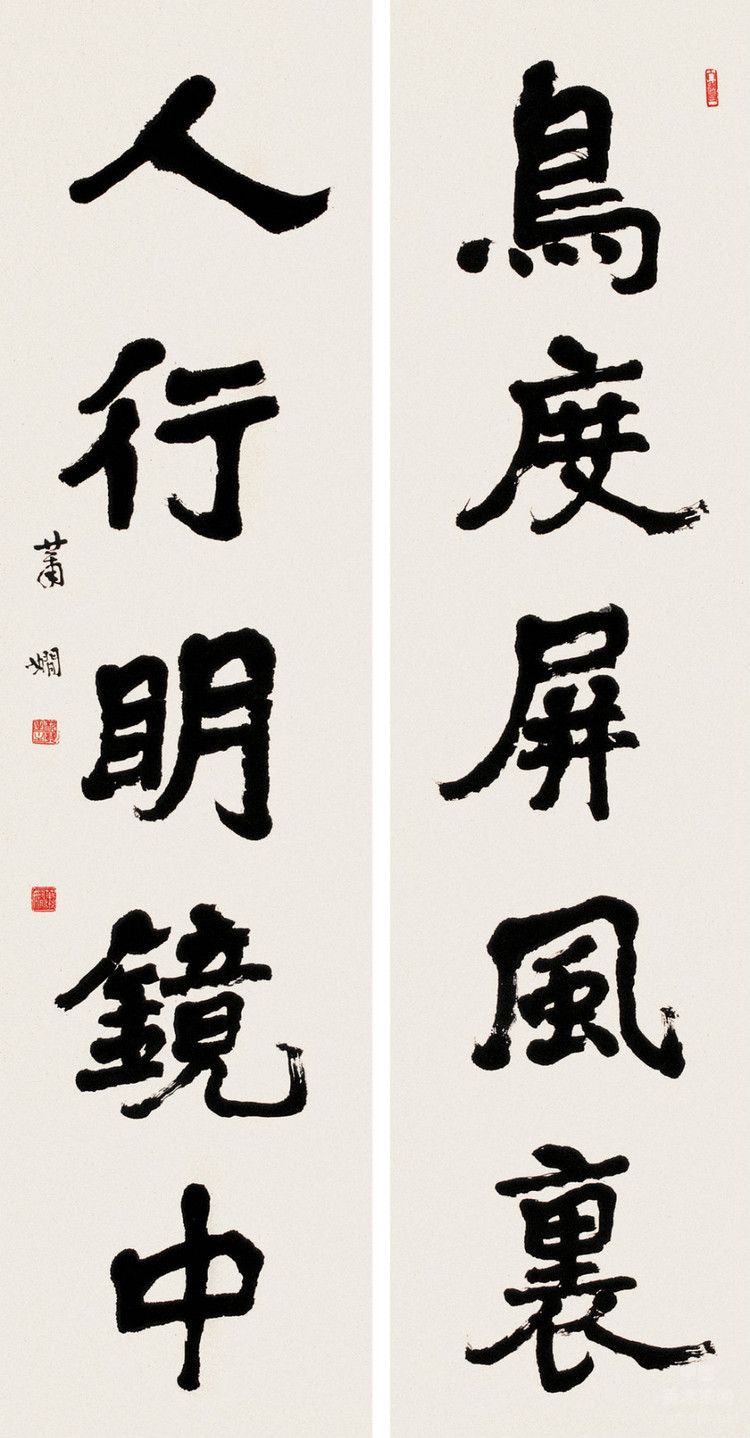 鳥度屏風裏
人行明鏡中
蕭嫺